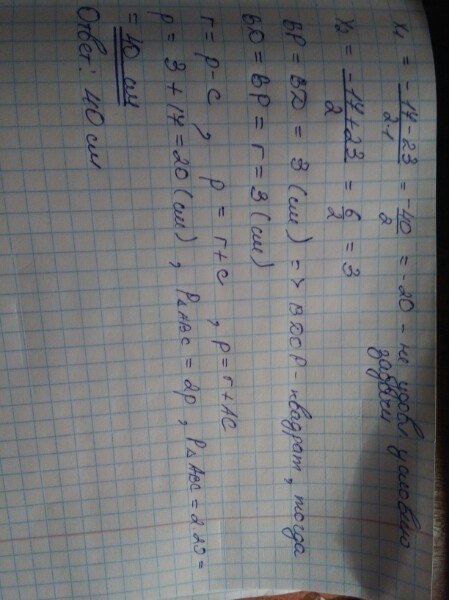 x₁ = -17-23 / 2·1 = -40 / 2 = -20 - не удов. условию
задачи
x₂ = -17+23 / 2 = 6 / 2 = 3
BP = BD = 3 (см) => BDOP - квадрат, тогда
BD = BP = r = 3 (см)
r = p - c , p = r + c , p = r + AC
p = 3 + 17 = 20 (см) , P△ABC = 2p , P△ABC = 2·20 =
= 40 см
Ответ: 40 см